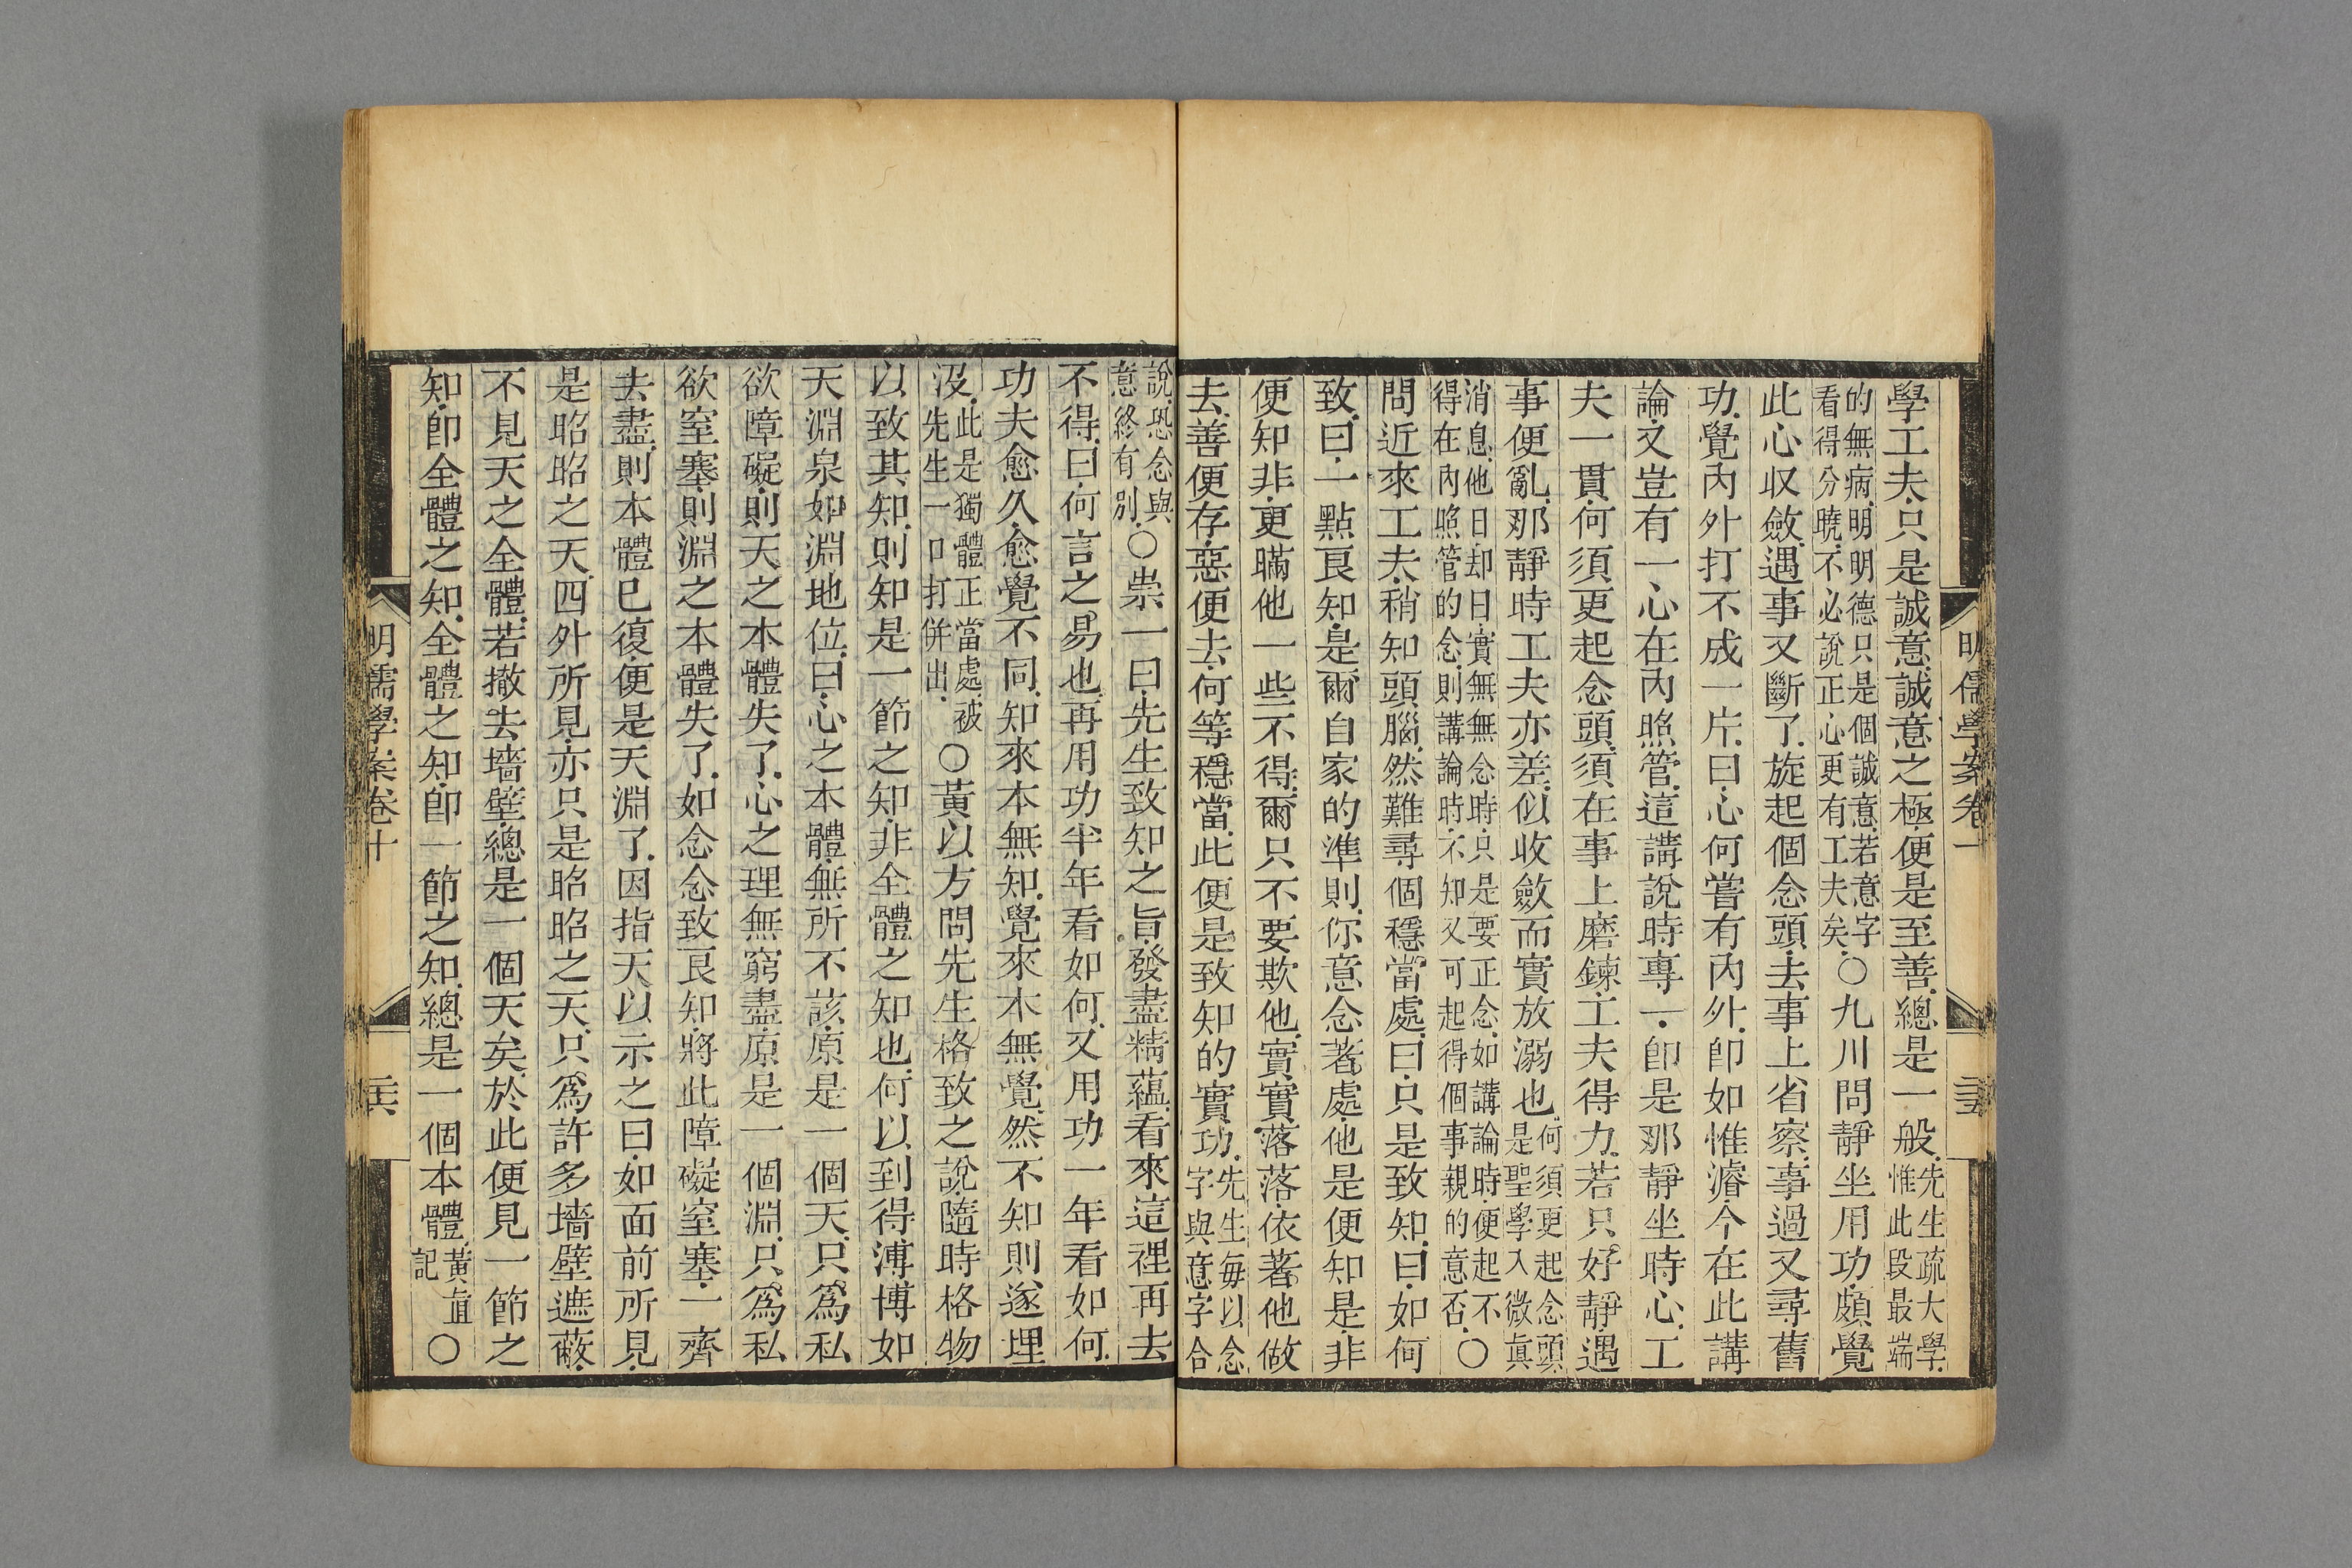 明儒學案卷十
學工夫只是誠意誠意之極便是至善總是一般先生疏大學惟此段最端
的無病明明德只是個誠意若意字看得分曉不必說正心更有工夫矣○九川問靜坐用功頗覺
此心収斂遇事又斷了旋起個念頭去事上省察事過又尋舊
功覺內外打不成一片曰心何嘗有內外卽如惟濬今在此講
論又豈有一心在內照管這講說時專一卽是那靜坐時心工
夫一貫何須更起念頭須在事上磨鍊工夫得力若只好靜遇
事便亂那靜時工夫亦差似收斂而實放溺也何須更起念頭是聖學入微眞
消息他日却曰實無無念時只是要正念如講論時便起不得在內照管的念則講論時不知又可起得個事親的意否○
問近來工夫稍知頭腦然難尋個穩當處曰只是致知曰如何
致曰一點良知是爾自家的準則你意念著處他是便知是非
便知非更瞞他一些不得爾只不要欺他實實落落依著他做
去善便存惡便去何等穩當此便是致知的實功先生每以念字與意字合
說恐念與意終有別○崇一曰先生致知之旨發盡精蘊看來這裡再去
不得曰何言之易也再用功半年看如何又用功一年看如何
功夫愈久愈覺不同知來本無知覺來本無覺然不知則遂埋
沒此是獨體正當處被先生一口打併出○黃以方問先生格致之說隨時格物
以致其知則知是一節之知非全體之知也何以到得溥博如
天淵泉如淵地位曰心之本體無所不該原是一個天只爲私
欲障礙則天之本體失了心之理無窮盡原是一個淵只爲私
欲窒塞則淵之本體失了如念念致良知將此障礙窒塞一齊
去盡則本體已復便是天淵了因指天以示之曰如面前所見
是昭昭之天四外所見亦只是昭昭之天只爲許多墻壁遮蔽
不見天之全體若撤去墻壁總是一個天矣於此便見一節之
知卽全體之知全體之知卽一節之知總是一個本體黃直記○
明儒學案卷十